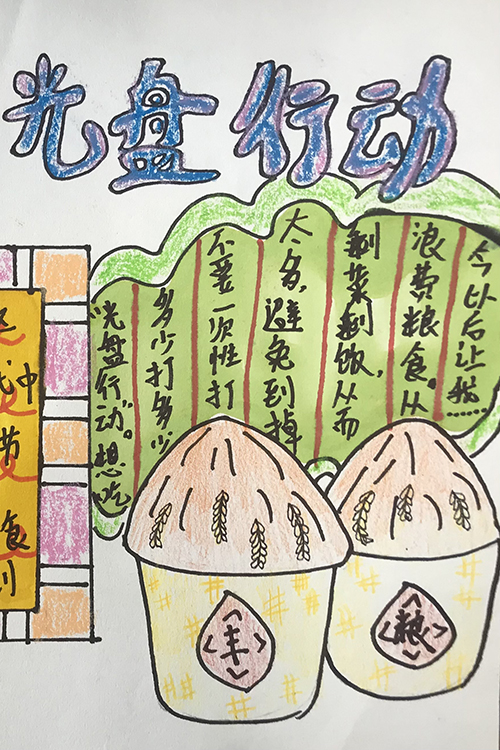 光盘行动
“光盘行动”。想吃
多少打多少
不要一次性打
太多，避免到掉
剩菜剩饭，从而
浪费粮食。从
今以后让我……
中
节
食
丰
粮